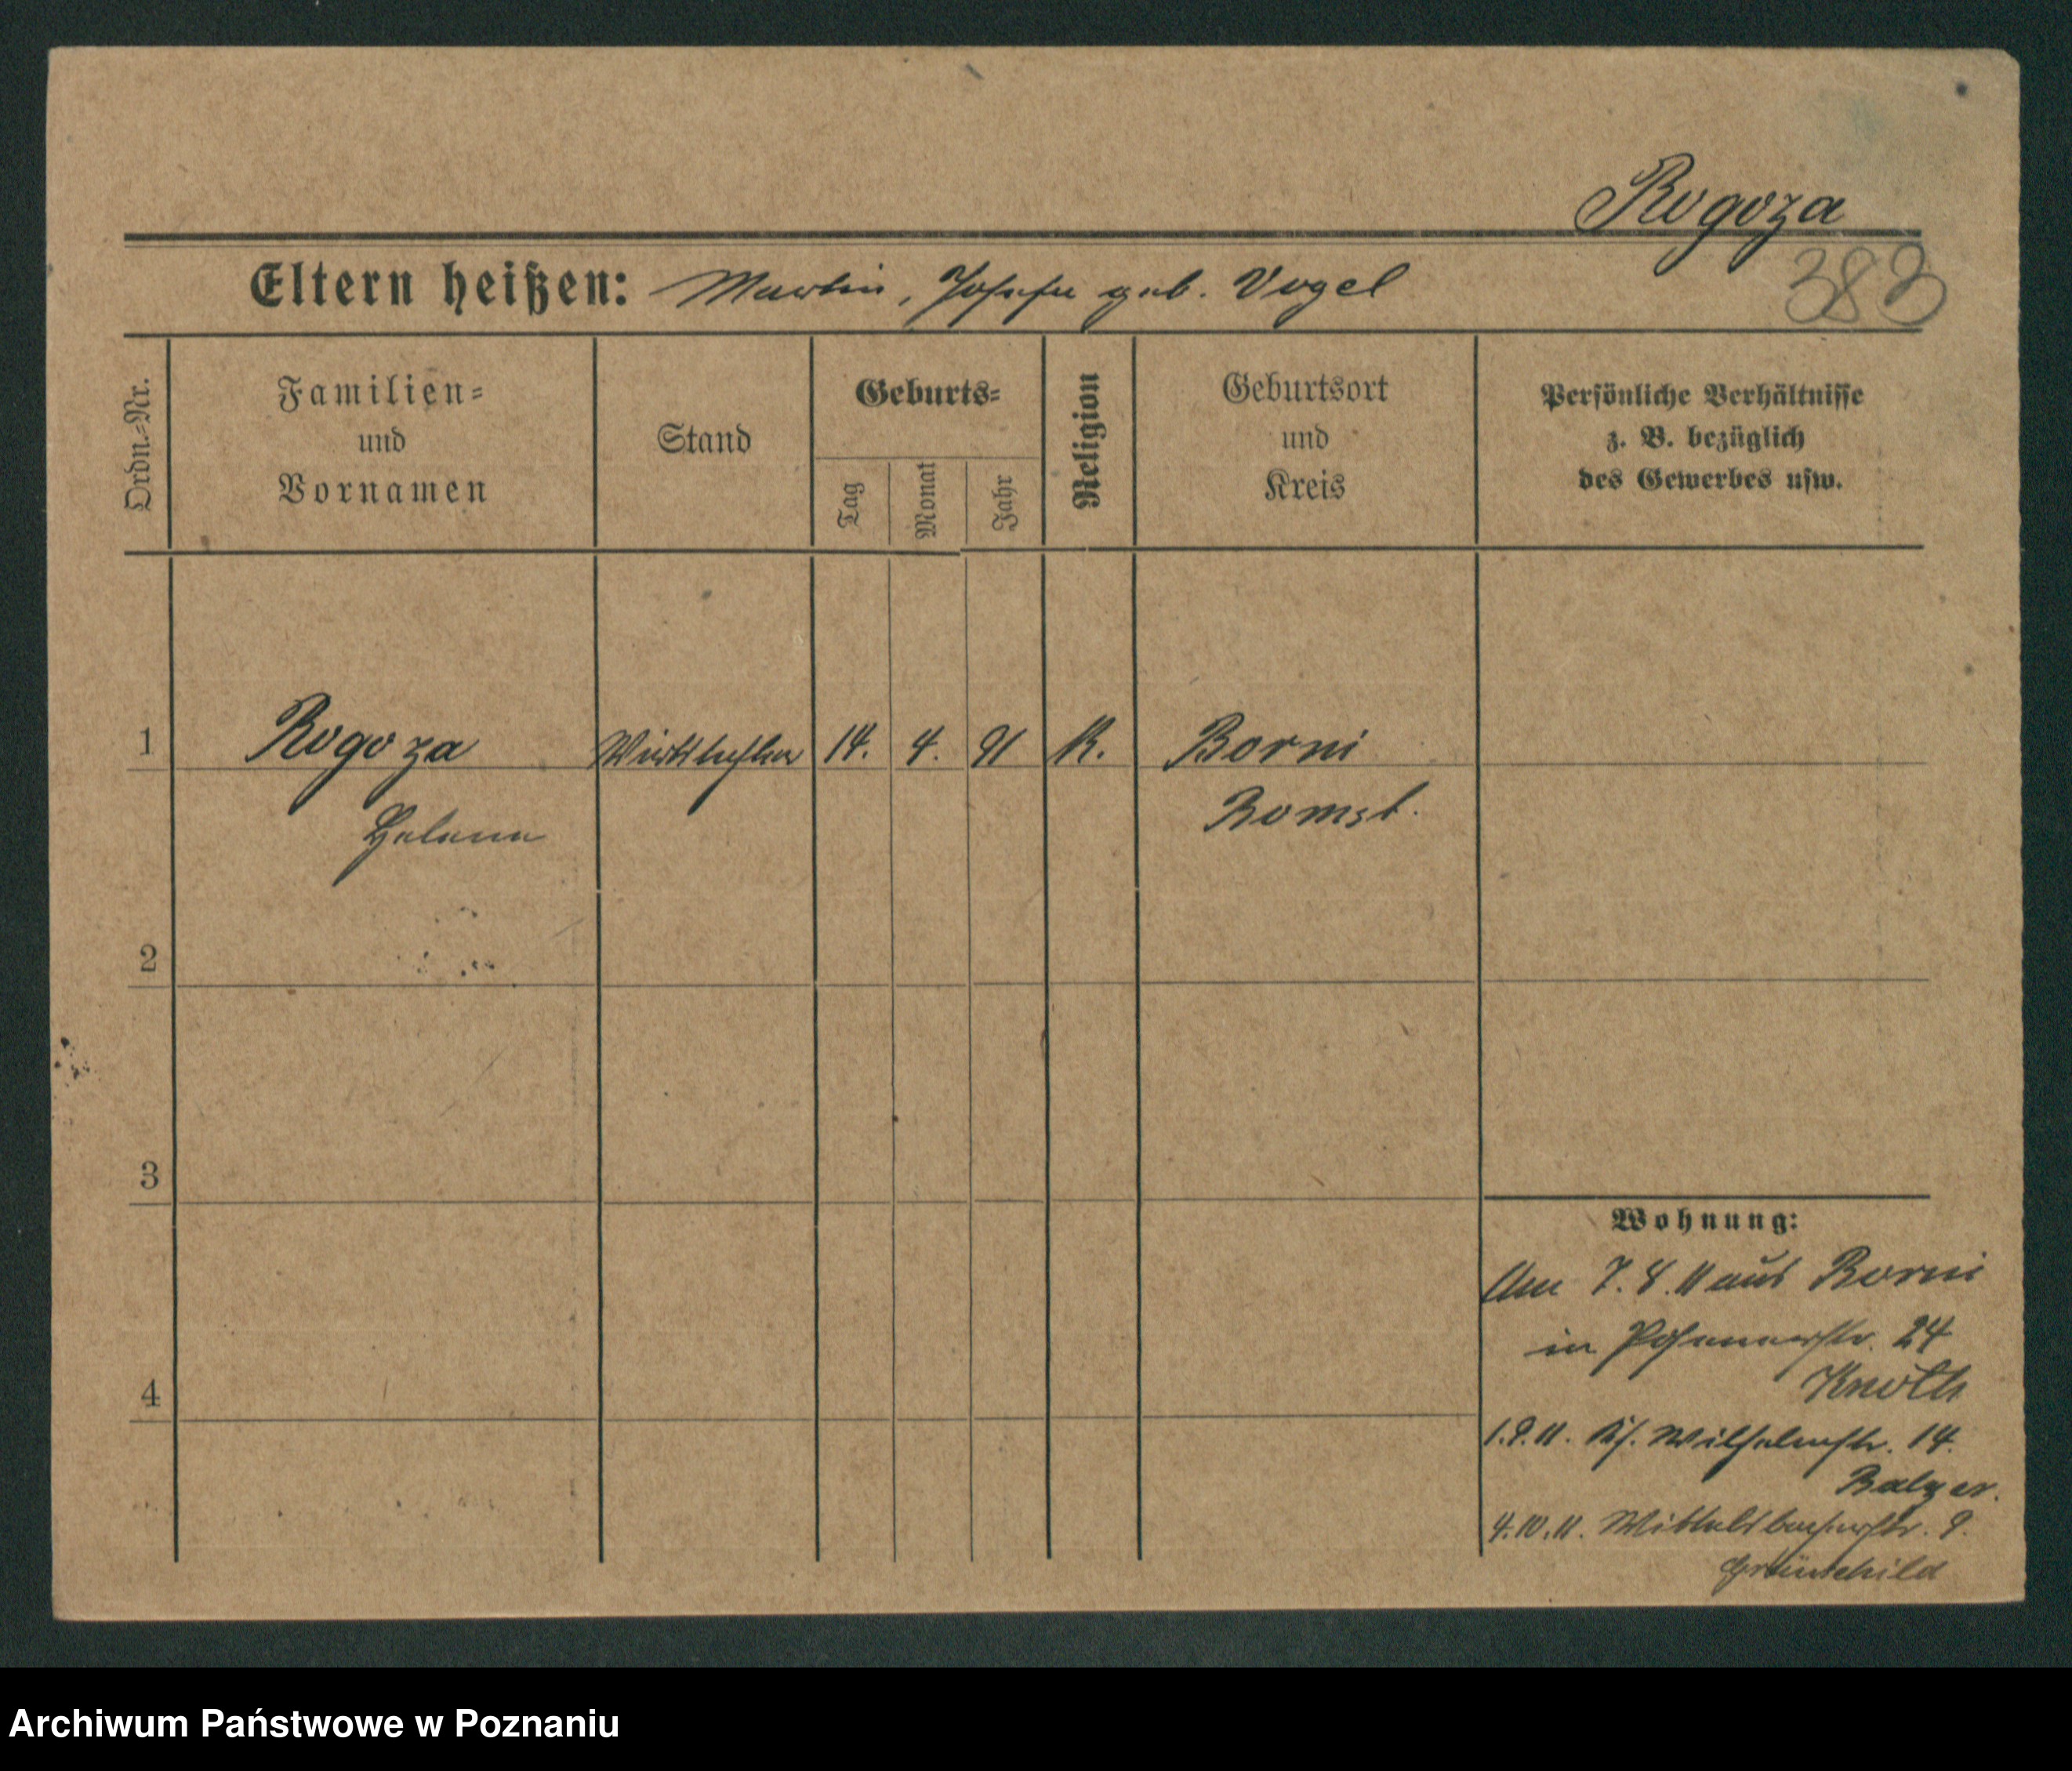 Rogoza
383
Eltern heißen: Martin, Josefa geb. Vogel
Ordn.=Nr.
Familien=
und
Vornamen
Stand
Geburts=
Tag
Monat
Jahr
Religion
Geburtsort
und
Kreis
Persönliche Verhältnisse
z. B. bezüglich
des Gewerbes usw.
1 Rogoza 14. 4. 91 K. Borni
Helena Bomst.
2
3
4
Wohnung:
Am 7.8.11 aus Borni
in Posenerstr. 24
Knoth
1.9.11. Ks. Wilhelmstr. 14.
Balzer.
4.10.11. Wittelsbacherstr. 9.
Grünschild
Archiwum Państwowe w Poznaniu